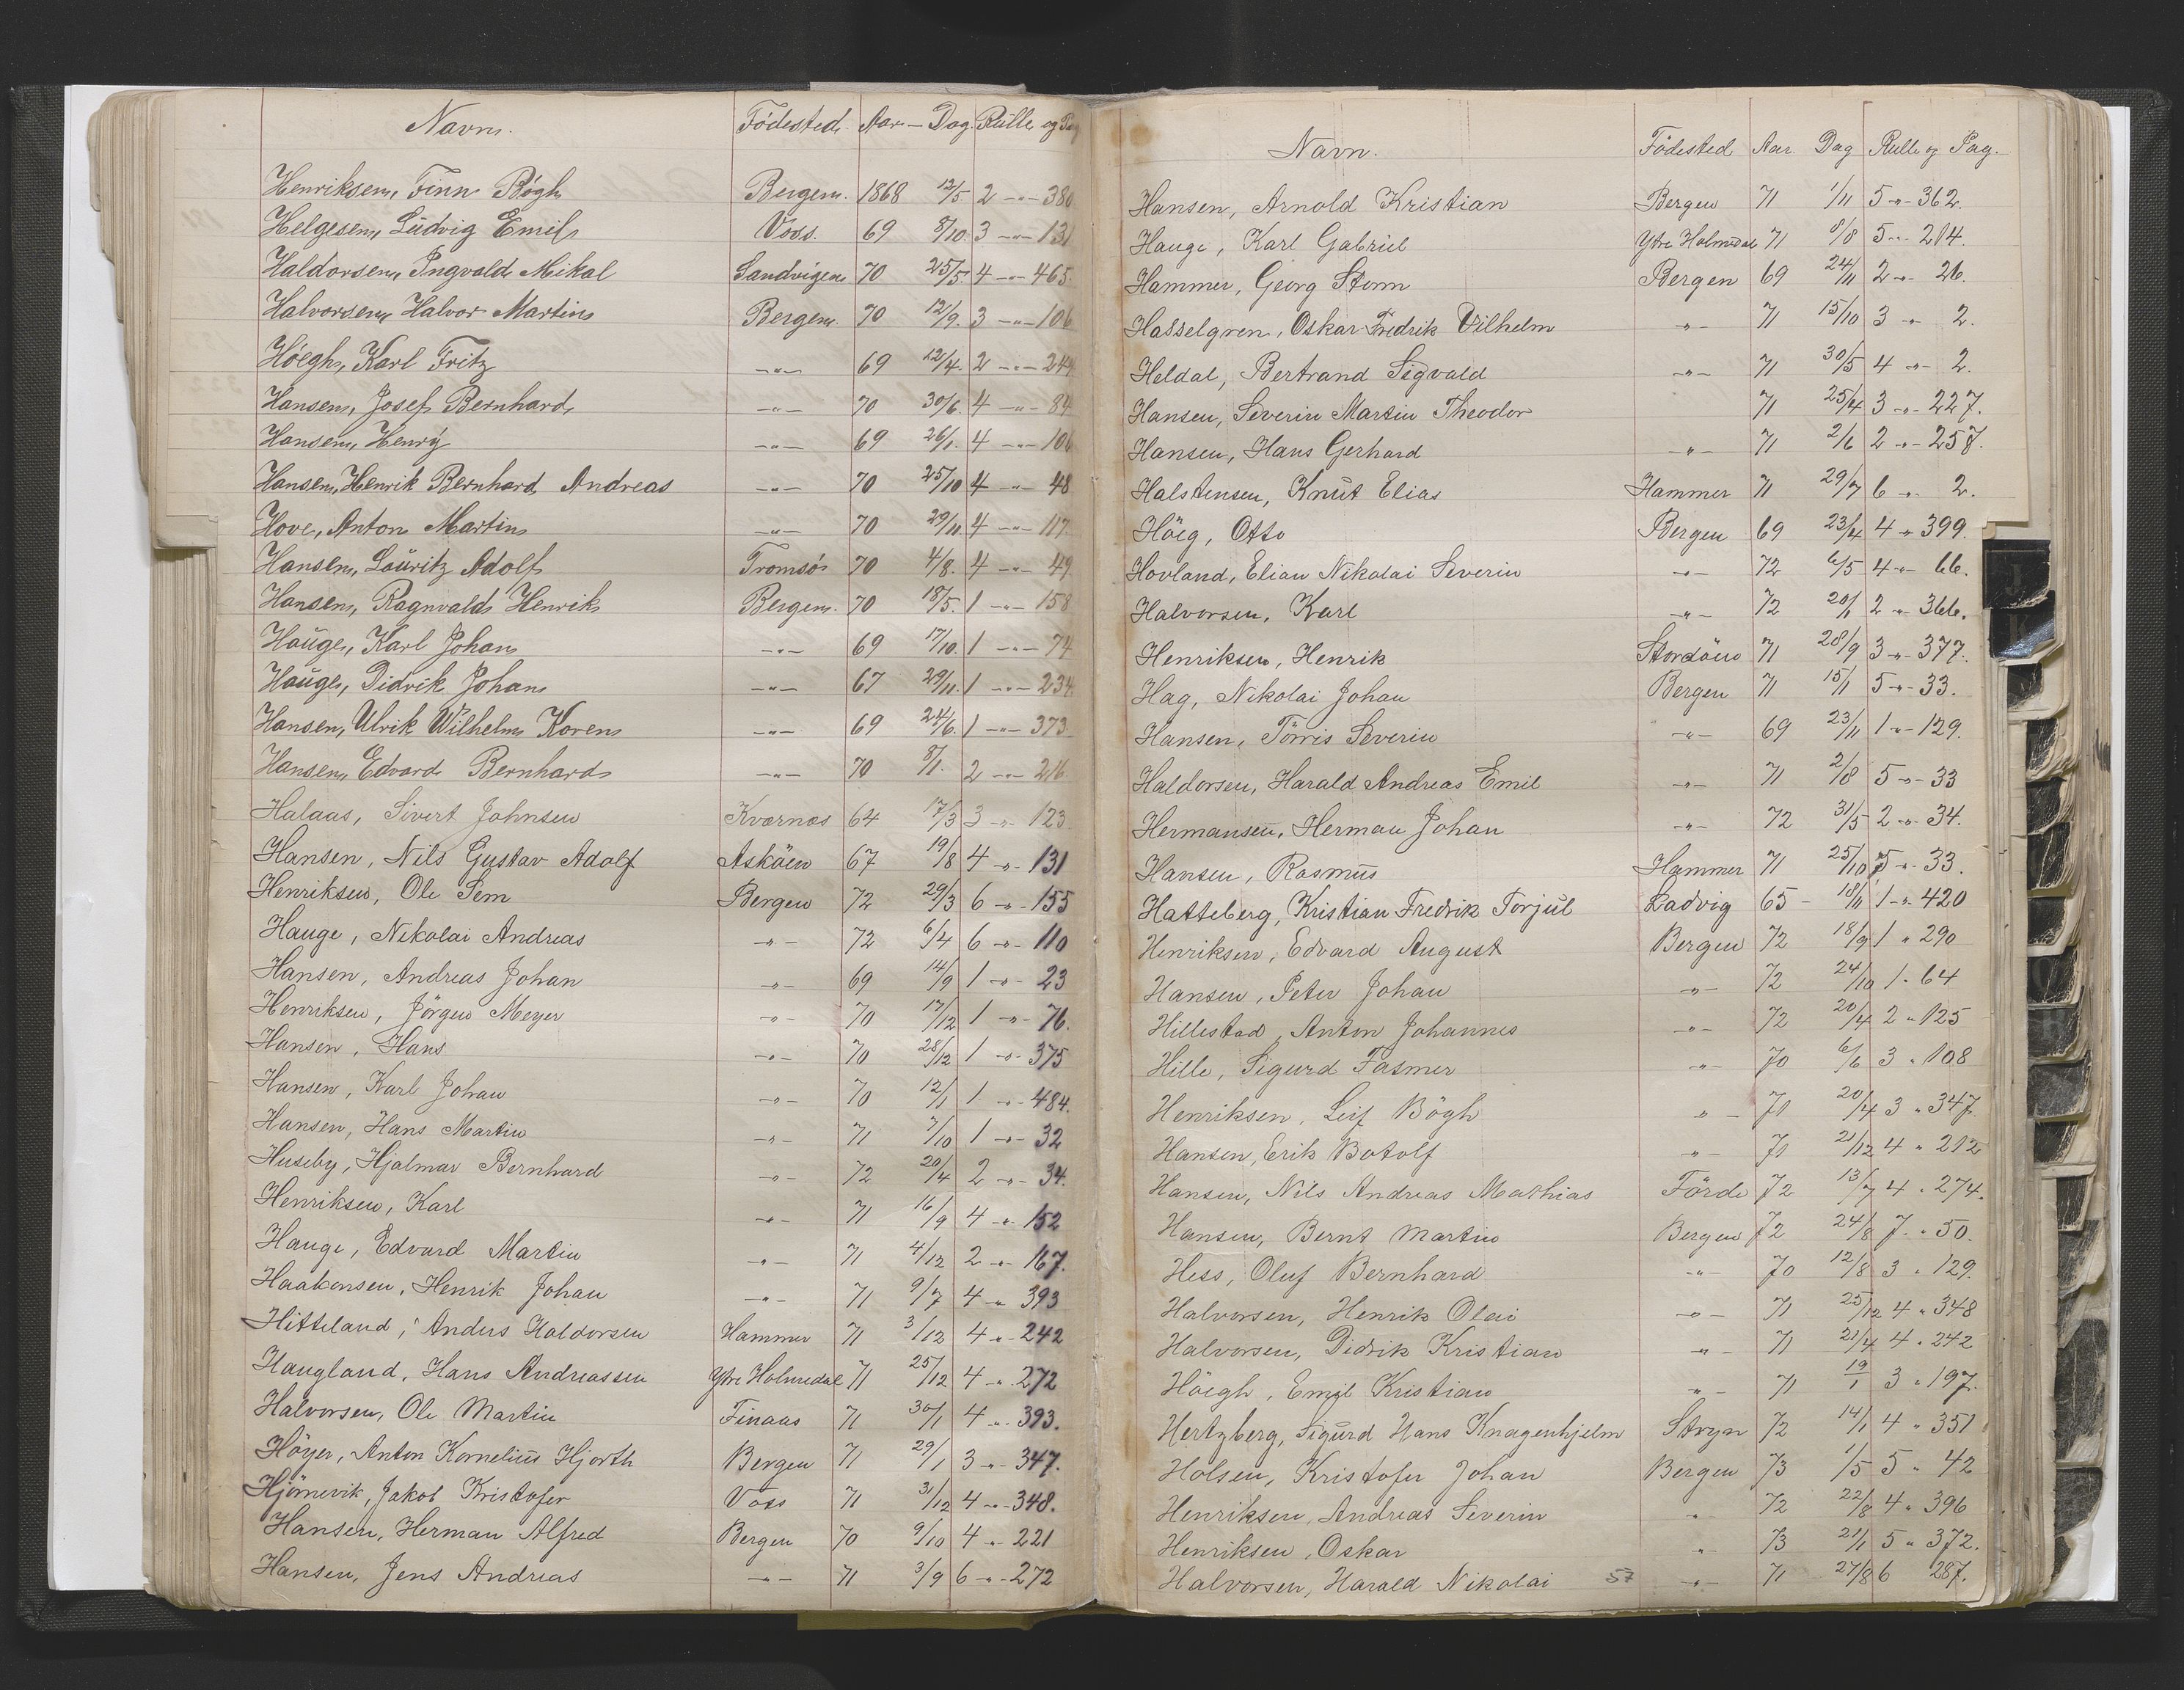 Navn. Födested. Aar – Dag. Rulle og Pag
Henriksen, Finn Bögh Bergen. 1868 12/5 2 -"- 380
Helgesen, Ludvig Emil Voss. 69 8/10. 3 -"- 131
Haldorsen, Ingvald Mikal Sandvigen 70 25/5. 4 -"- 465.
Halvorsen, Halvor Martin Bergen. 70 12/9. 3 -"- 106
Höegh, Karl Fritz -"- 69 12/4. 2 -"- 244
Hansen, Josef Bernhard -"- 70 30/6. 4 -"- 84
Hansen, Henry -"- 69 26/1. 4 -"- 106
Hansen, Henrik Bernhard Andreas -"- 70 25/10 4 -"- 48
Hove, Anton Martin -"- 70 29/11. 4 -"- 117.
Hansen, Lauritz Adolf Tromsö 70 4/8. 4 -"- 49
Hansen, Ragnvald Henrik Bergen. 70 18/5. 1 -"- 158
Hauge, Karl Johan -"- 69 17/10. 1 -"- 74
Hauge, Didrik Johan -"- 67 29/11. 1 -"- 234
Hansen, Ulrik Wilhelm Koren -"- 69 24/6. 1 -"- 373
Hansen, Edvard Bernhard -"- 70 8/1. 2 -"- 216
Halaas, Sivert Johnsen Kvernes 64 17/3 3 -"- 123
Hansen, Nils Gustav Adolf Asköen 67 19/8 4 -"- 131
Henriksen, Ole Sem Bergen 72 29/3 6 -"- 155
Hauge, Nikolai Andreas -"- 72 6/4 6 -"- 110
Hansen, Andreas Johan -"- 69 14/9 1 -"- 23
Henriksen, Jörgen Meyer -"- 70 17/12 1 -"- 76.
Hansen, Hans -"- 70 28/12 1 -"- 375
Hansen, Karl Johan -"- 70 12/1 1 -"- 484.
Hansen, Hans Martin -"- 71 7/10 1 -"- 32
Huseby, Hjalmar Bernhard -"- 72 20/4 2 -"- 34.
Henriksen, Karl -"- 71 16/9 4 -"- 152
Hauge, Edvard Martin -"- 71 4/12 2 -"- 167.
Haakonsen, Henrik Johan -"- 71 9/7 4 -"- 393
Hitteland, Anders Haldorsen Hammer 71 3/12 4 -"- 242
Haugland, Hans Andreassen Ytre Holmedal 71 25/12 4 -"- 272
Halvorsen, Ole Martin Finaas 71 30/1 4 -"- 393.
Höyer, Anton Kornelius Hjorth Bergen 71 29/1 3 -"- 347.
Hjörnevik, Jakob Kristofer Voss 71 31/12 4 -"- 348.
Hansen, Herman Alfred Bergen 70 9/10 4 -"- 221
Hansen, Jens Andreas -"- 71 3/9 6 -"- 272
Navn. Födested Aar. Dag Rulle og Pag.
Hansen, Arnold Kristian Bergen 71 1/11 5 -"- 362.
Hauge, Karl Gabriel Ytre Holmedal 71 8/8 5 -"- 214.
Hammer, Georg Storm Bergen 69 24/11 2 -"- 26.
Hasselgren, Oskar Fredrik Vilhelm -"- 71 15/10 3 -"- 2.
Heldal, Bertrand Sigvald -"- 71 30/5 4 -"- 2.
Hansen, Severin Martin Theodor 71 25/4 3 -"- 227.
Hansen, Hans Gerhard -"- 71 2/6 2 -"- 257.
Halstensen, Knut Elias Hammer 71 29/7 6 -"- 2.
Höeg, Otto Bergen 69 23/4 4 -"- 399.
Hovland, Elian Nikolai Severin -"- 72 6/5 4 -"- 66.
Halvorsen, Karl -"- 72 20/1 2 -"- 366.
Henriksen, Henrik Stordöen 71 28/9 3 -"- 377.
Hag, Nikolai Johan Bergen 71 15/1 5 -"- 33.
Hansen, Törris Severin -"- 69 23/11 1 -"- 129.
Haldorsen, Harald Andreas Emil -"- 71 2/8 5 -"- 33
Hermansen, Herman Johan -"- 72 31/5 2 -"- 34.
Hansen, Rasmus Hammer 71 25/10 5 -"- 33.
Hatteberg, Kristian Fredrik Torjul Ladvig 65 – 18/11 1 -"- 420
Henriksen, Edvard August Bergen 72 18/9 1 " 290
Hansen, Peter Johan -"- 72 24/10 1 - 64
Hillestad, Anton Johannes -"- 72 20/4 2 " 125
Hille, Sigurd Fasmer -"- 70 6/6 3 " 108
Henriksen, Leif Bögh " - 71 20/4 3 " 347
Hansen, Erik Botolf "- 71 21/12 4 " 212
Hansen, Nils Andreas Mathias Förde 72 13/7 4 " 274.
Hansen, Bernt Martin Bergen 72 24/8 7. " 50.
Hess, Oluf Bernhard -"- 70 12/8 3 " 129.
Halvorsen, Henrik Olai -"- 71 25/12 4 " 348
Halvorsen, Didrik Kristian "- 71 21/4 4 " 242
Höegh, Emil Kristian "- 71 19/1 3 " 197.
Hertzberg, Sigurd Hans Knagenhjelm Stryn 72 14/1 4 " 351
Holsen, Kristofer Johan Bergen 73 1/5 5 " 42
Henriksen, Andreas Severin " 72 22/8 4 " 396
Henriksen, Oskar " 73 21/1 5 " 372.
Halvorsen, Harald Nikolai 57 -"- 71 27/8 6 287.
J
K